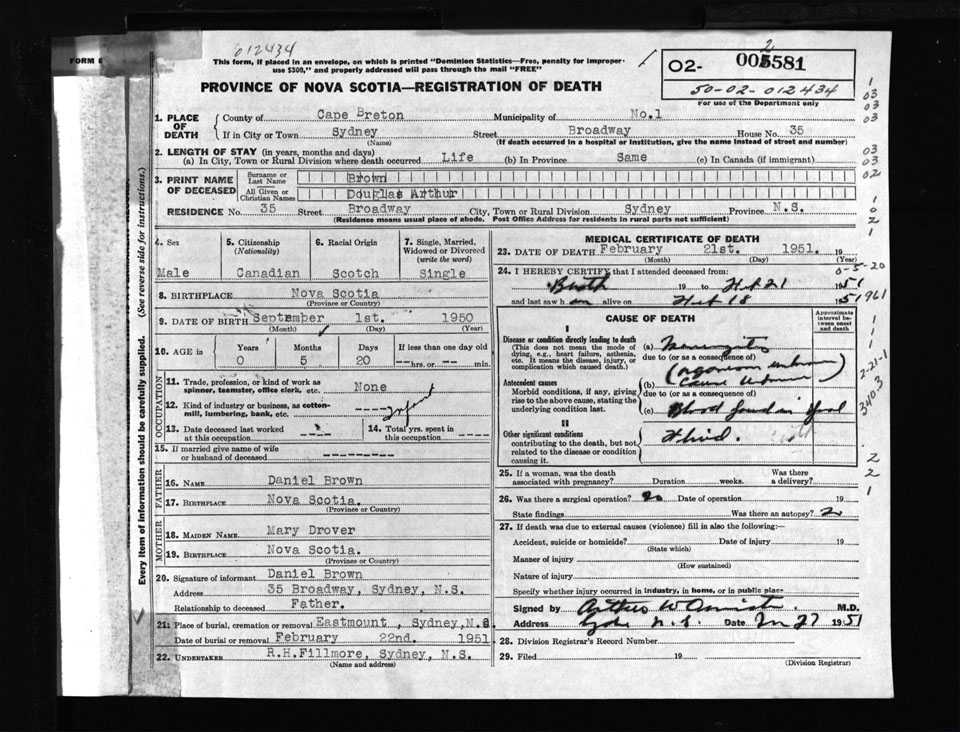 012434
FORM 6
This form, if placed in an envelope, on which is printed "Dominion Statistics—Free, penalty for improper
use $300," and properly addressed will pass through the mail "FREE"
PROVINCE OF NOVA SCOTIA—REGISTRATION OF DEATH
02- 005581
2
50-02-012434
For use of the Department only
1. PLACE OF DEATH
County of Cape Breton Municipality of No.1
If in City or Town Sydney Street Broadway House No. 35
(Name) (If death occurred in a hospital or institution, give the name instead of street and number)
2. LENGTH OF STAY (in years, months and days)
(a) In City, Town or Rural Division where death occurred Life (b) In Province Same (c) In Canada (if immigrant)
3. PRINT NAME OF DECEASED
Surname or Last Name Brown
All Given or Christian Names Douglas Arthur
RESIDENCE No. 35 Street Broadway City, Town or Rural Division Sydney Province N.S.
(Residence means usual place of abode. Post Office Address for residents in rural parts not sufficient)
4. Sex
Male
5. Citizenship
(Nationality)
Canadian
6. Racial Origin
Scotch
7. Single, Married, Widowed or Divorced
(write the word)
Single
8. BIRTHPLACE Nova Scotia
(Province or Country)
9. DATE OF BIRTH September 1st. 1950
(Month) (Day) (Year)
10. AGE in Years Months Days If less than one day old
0 5 20 hrs. or min.
OCCUPATION
11. Trade, profession, or kind of work as
spinner, teamster, office clerk, etc. None
12. Kind of industry or business, as cotton-
mill, lumbering, bank, etc. Infant
13. Date deceased last worked
at this occupation
14. Total yrs. spent in
this occupation
15. If married give name of wife
or husband of deceased
FATHER
16. NAME Daniel Brown
17. BIRTHPLACE Nova Scotia.
(Province or Country)
MOTHER
18. MAIDEN NAME Mary Drover
19. BIRTHPLACE Nova Scotia.
(Province or Country)
20. Signature of informant Daniel Brown
Address 35 Broadway, Sydney, N.S.
Relationship to deceased Father.
21: Place of burial, cremation or removal Eastmount, Sydney, N.S.
Date of burial or removal February 22nd. 1951
22. UNDERTAKER R.H.Fillmore, Sydney, N.S.
(Name and address)
Every item of information should be carefully supplied. (See reverse side for instructions.)
MEDICAL CERTIFICATE OF DEATH
23. DATE OF DEATH February 21st. 1951. 19
(Month) (Day) (Year)
24. I HEREBY CERTIFY that I attended deceased from:
Birth 19 to Feb 21 1951
and last saw h im alive on Feb 18 1951
0-5-20
961
CAUSE OF DEATH
Approximate interval between onset and death
I
Disease or condition directly leading to death
(This does not mean the mode of
dying, e.g., heart failure, asthenia,
etc. It means the disease, injury, or
complication which caused death.)
(a) Meningitis
due to (or as a consequence of)
Antecedent causes
Morbid conditions, if any, giving
rise to the above cause, stating the
underlying condition last.
(b)
due to (or as a consequence of)
(c) Blood found in
II
Other significant conditions
contributing to the death, but not
related to the disease or condition
causing it.
2-21-1
340.3
25. If a woman, was the death
associated with pregnancy? Duration weeks. Was there
a delivery?
26. Was there a surgical operation? no Date of operation 19
State findings Was there an autopsy?
27. If death was due to external causes (violence) fill in also the following:—
Accident, suicide or homicide? Date of injury 19
(State which)
Manner of injury
(How sustained)
Nature of injury
Specify whether injury occurred in industry, in home, or in public place
Signed by Arthur W M.D.
Address N.S. Date 27 1951
28. Division Registrar's Record Number
29. Filed 19
(Division Registrar)
1
03
03
03
03
03
02
1
0
2
1
1
1
1
2
2
1